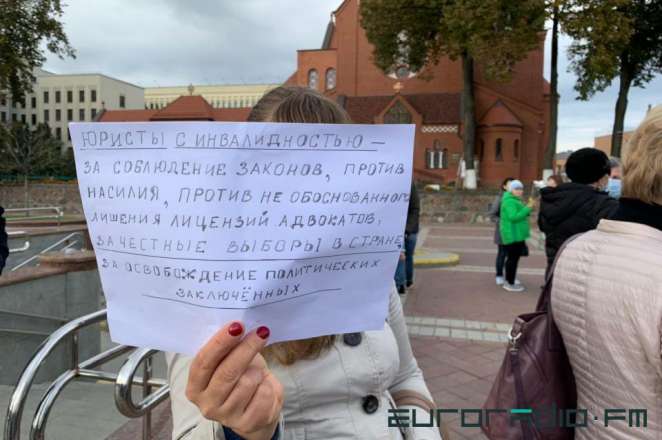 ЮРИСТЫ С ИНВАЛИДНОСТЬЮ –
ЗА СОБЛЮДЕНИЕ ЗАКОНОВ, ПРОТИВ
НАСИЛИЯ, ПРОТИВ НЕ ОБОСНОВАННОГО
ЛИШЕНИЯ ЛИЦЕНЗИЙ АДВОКАТОВ,
ЗА ЧЕСТНЫЕ ВЫБОРЫ В СТРАНЕ,
ЗА ОСВОБОЖДЕНИЕ ПОЛИТИЧЕСКИХ
ЗАКЛЮЧЁННЫХ
EURORADIO.FM